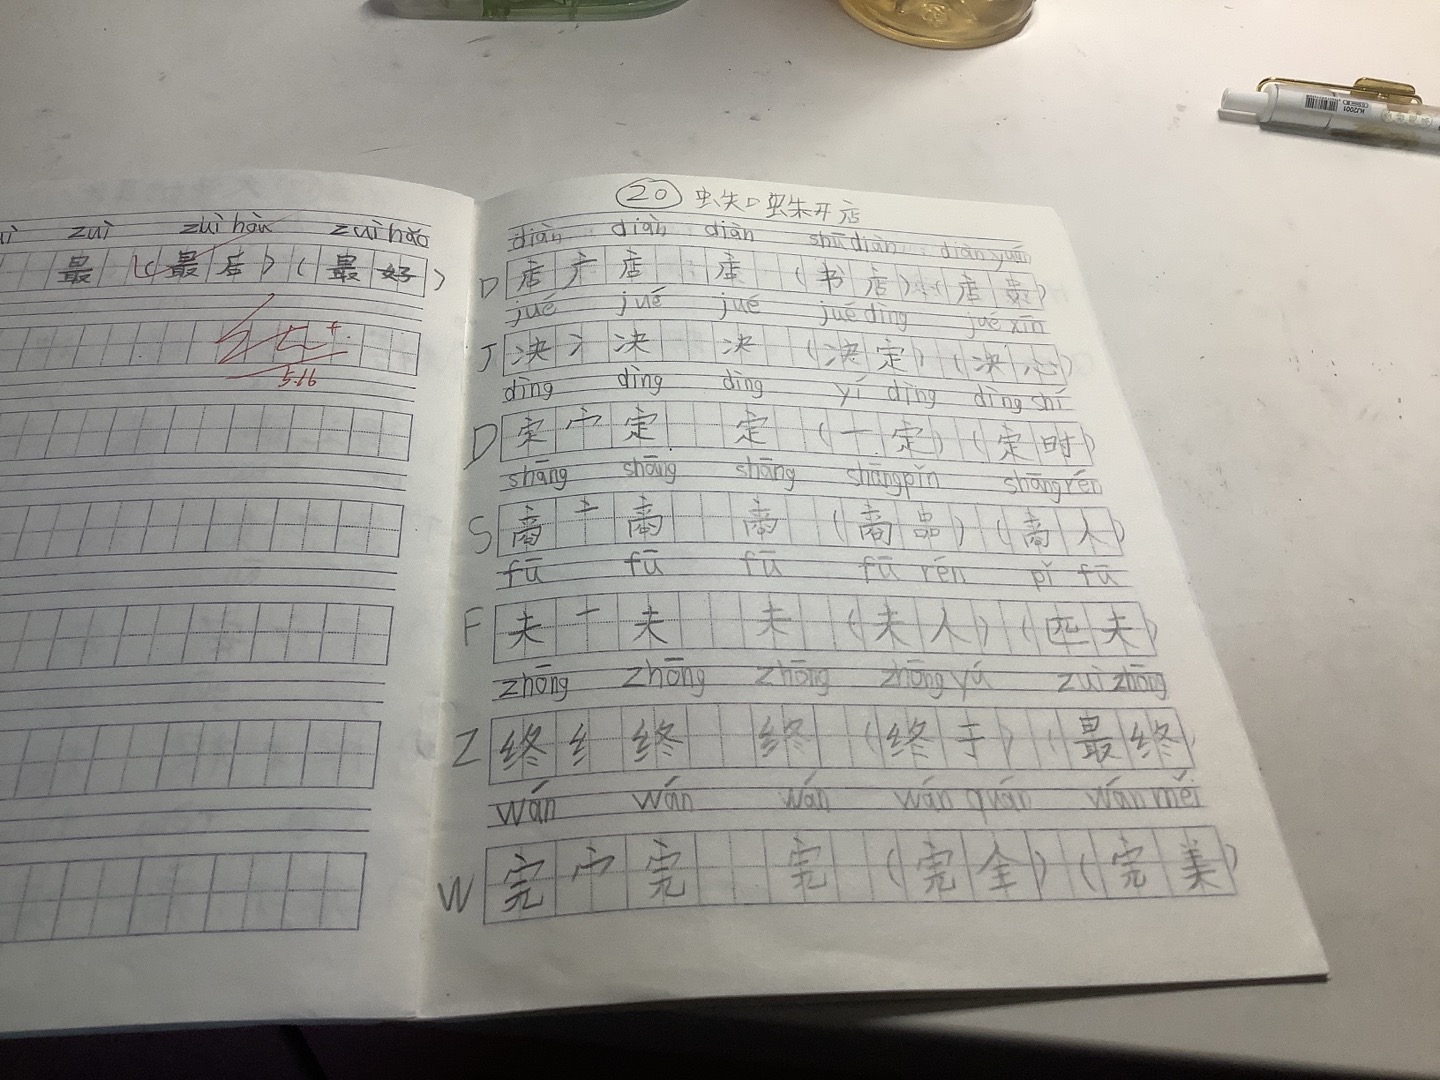 zuì zuì hòu zuì hǎo
最 (最后) (最好)
5.16
20 蜘蛛开店
diàn diàn diàn shū diàn diàn yuán
D 店 广 店 店 (书店) (店员)
jué jué jué jué dìng jué xīn
J 决 冫 决 决 (决定) (决心)
dìng dìng dìng yí dìng dìng shí
D 定 宀 定 定 (一定) (定时)
shāng shāng shāng shāngpǐn shāngrén
S 商 亠 商 商 (商品) (商人)
fū fū fū fū rén pǐ fū
F 夫 一 夫 夫 (夫人) (匹夫)
zhōng zhōng zhōng zhōng yú zuì zhōng
Z 终 纟 终 终 (终于) (最终)
wán wán wán wán quán wán měi
W 完 宀 完 完 (完全) (完美)
KJ2001